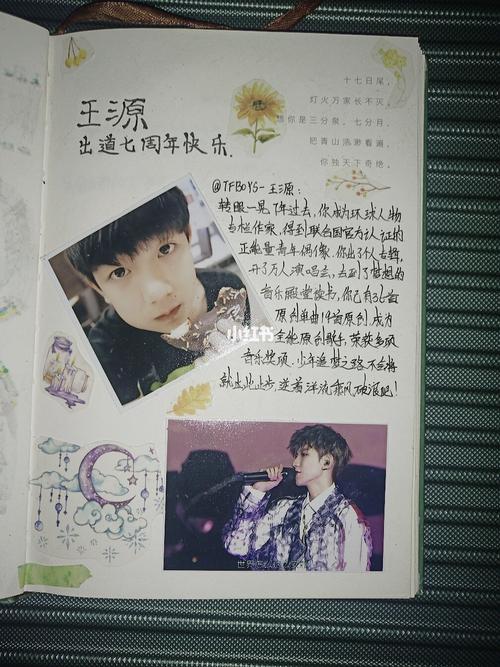 王源
出道七周年快乐.
十七日尾,
灯火万家长不灭,
你是三分泉,七分月,
把青山浩渺看遍,
你独天下奇绝,
@TFBOYS-王源:
转眼一晃7年过去,你成为环球人物
专栏作家,得到联合国官方认证的
正能量青年偶像,你出了个人专辑,
开了万人演唱会,去到了梦想的
音乐殿堂读书,你已有36首
原创单曲14首原创,成为
全能原创歌手,荣获多项
音乐奖项,少年追梦之路不会将
就止步,逆着洋流乘风破浪吧!
小红书